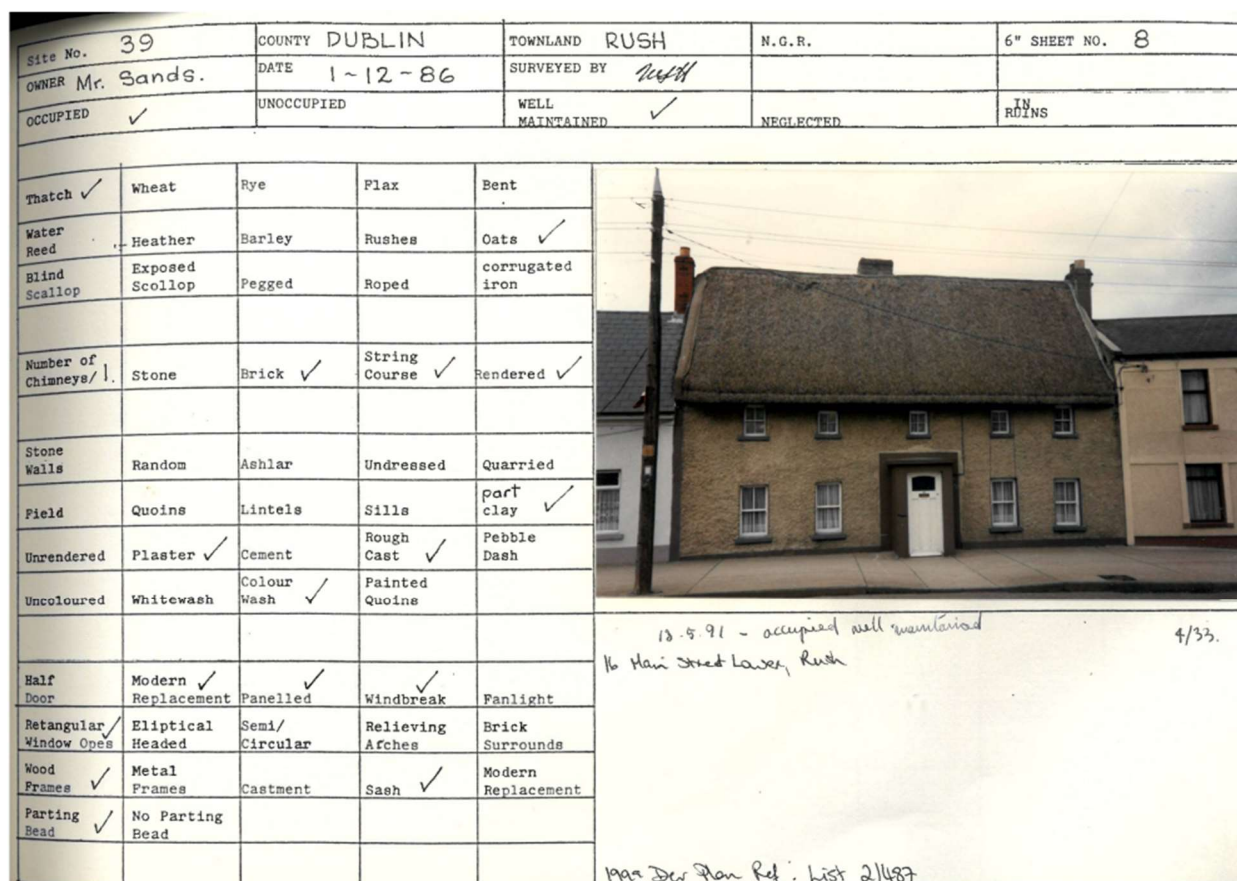 Site No. 39 COUNTY DUBLIN TOWNLAND RUSH N.G.R. 6" SHEET NO. 8
OWNER Mr. Sands. DATE 1-12-86 SURVEYED BY
OCCUPIED ✓ UNOCCUPIED WELL MAINTAINED ✓ NEGLECTED IN RUINS
Thatch ✓ Wheat Rye Flax Bent
Water Reed Heather Barley Rushes Oats ✓
Blind Scallop Exposed Scollop Pegged Roped corrugated iron
Number of Chimneys/1. Stone Brick ✓ String Course ✓ Rendered ✓
Stone Walls Random Ashlar Undressed Quarried
Field Quoins Lintels Sills part clay ✓
Unrendered Plaster ✓ Cement Rough Cast ✓ Pebble Dash
Uncoloured Whitewash Colour Wash ✓ Painted Quoins
Half Door Modern Replacement ✓ Panelled ✓ Windbreak ✓ Fanlight
Retangular Window Opes ✓ Eliptical Headed Semi/Circular Relieving Arches Brick Surrounds
Wood Frames ✓ Metal Frames Castment Sash ✓ Modern Replacement
Parting Bead ✓ No Parting Bead
.5.91 - occupied well maintained 4/33.
16 Main Street Lower, Rush
Dev Plan Ref: List 2/487